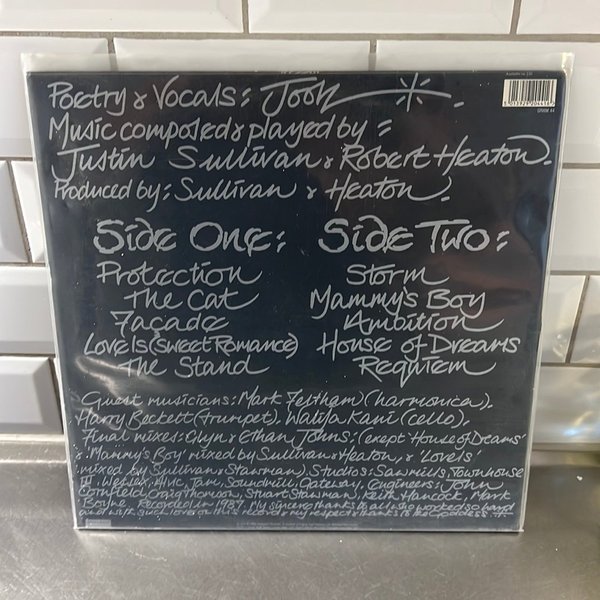 Poetry & Vocals: Joolz
Music composed & played by:
Justin Sullivan & Robert Heaton.
Produced by: Sullivan & Heaton.
Side One: Side Two:
Protection Storm
The Cat Mammy's Boy
Façade Ambition
Love Is (Sweet Romance) House of Dreams
The Stand Requiem
Guest musicians: Mark Feltham (harmonica).
Harry Beckett (trumpet). Walija Kani (cello).
Final mixes: Glyn & Ethan Johns. (exept 'House of Dreams'
& 'Mammy's Boy' mixed by Sullivan & Heaton, & 'Love Is'
mixed by Sullivan & Stawman). Studios: Sawmills, Townhouse
III, Wessex, Jam, Soundmill, Gateway. Engineers: John
Cornfield, Craig Thomson, Stuart Stawman, Keith Hancock, Mark
Boyne. Recorded in 1987. My sincere thanks to all who worked so hard
and with such love on this record & my respect & thanks to the Goddess
5 013929 204416